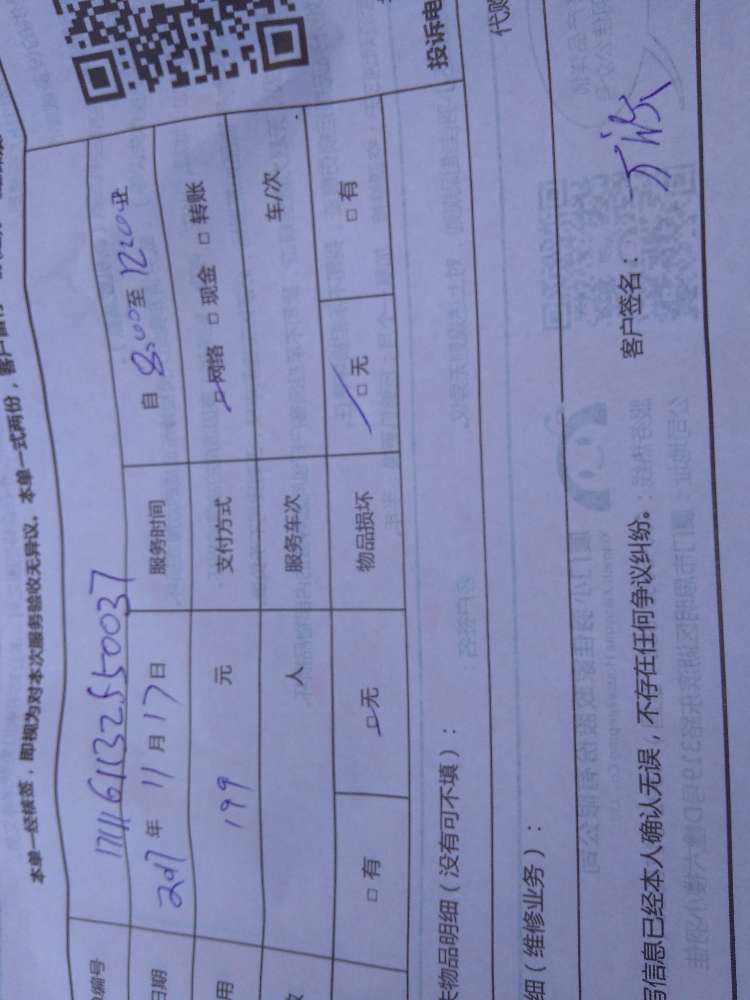 本单一经核签，即视为对本次服务验收无异议。本单一式两份，客户留存
编号 1711161132550037
日期 2017年11月17日 服务时间 自 8:00至12:00止
用 199 元 支付方式 □网络 □现金 □转账
人 服务车次 车/次
□有 □无 物品损坏 □无 □有
失物品明细（没有可不填）：
投诉电
代购
细（维修业务）：
写信息已经本人确认无误，不存在任何争议纠纷。 客户签名：